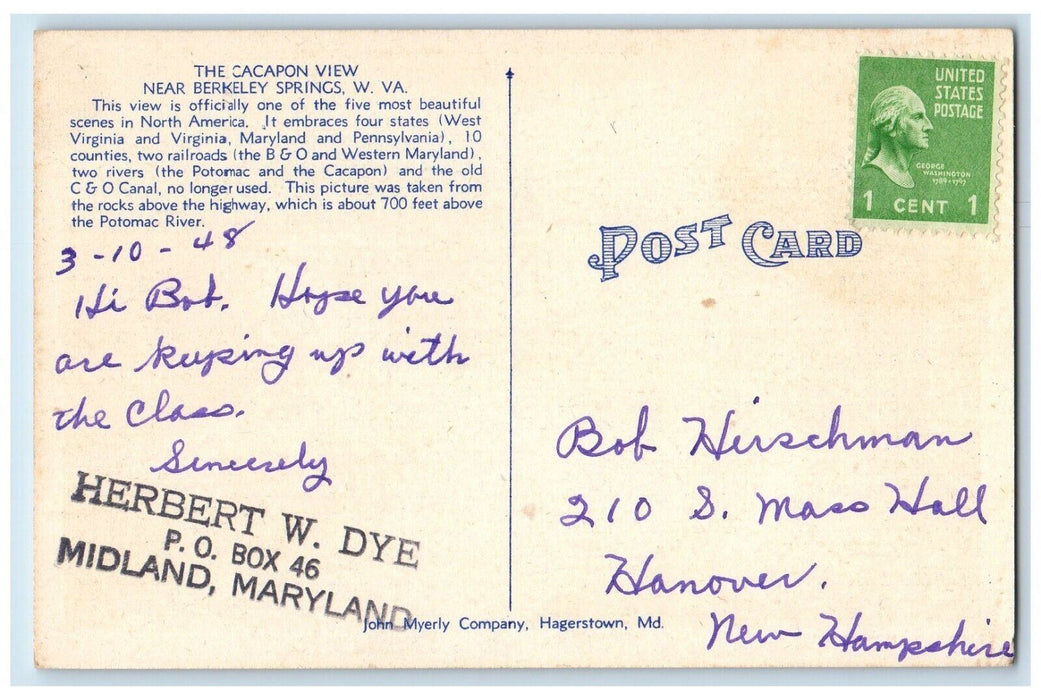 THE CACAPON VIEW
NEAR BERKELEY SPRINGS, W. VA.
This view is officially one of the five most beautiful
scenes in North America. It embraces four states (West
Virginia and Virginia, Maryland and Pennsylvania), 10
counties, two railroads (the B & O and Western Maryland),
two rivers (the Potomac and the Cacapon) and the old
C & O Canal, no longer used. This picture was taken from
the rocks above the highway, which is about 700 feet above
the Potomac River.
3-10-48
Hi Bob. Hope you
are keeping up with
the Class.
Sincerely
HERBERT W. DYE
P. O. BOX 46
MIDLAND, MARYLAND
John Myerly Company, Hagerstown, Md.
UNITED
STATES
POSTAGE
GEORGE
WASHINGTON
1789-1797
1 CENT 1
POST CARD
Bob Hirschman
210 S. Mass Hall
Hanover.
New Hampshire